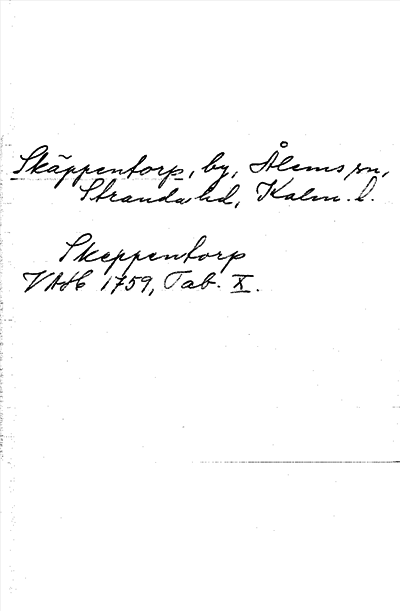 Skäppentorp, by, Ålems sn,
Stranda hd, Kalm. l.
Skeppentorp
VAH 1759, Tab. X.